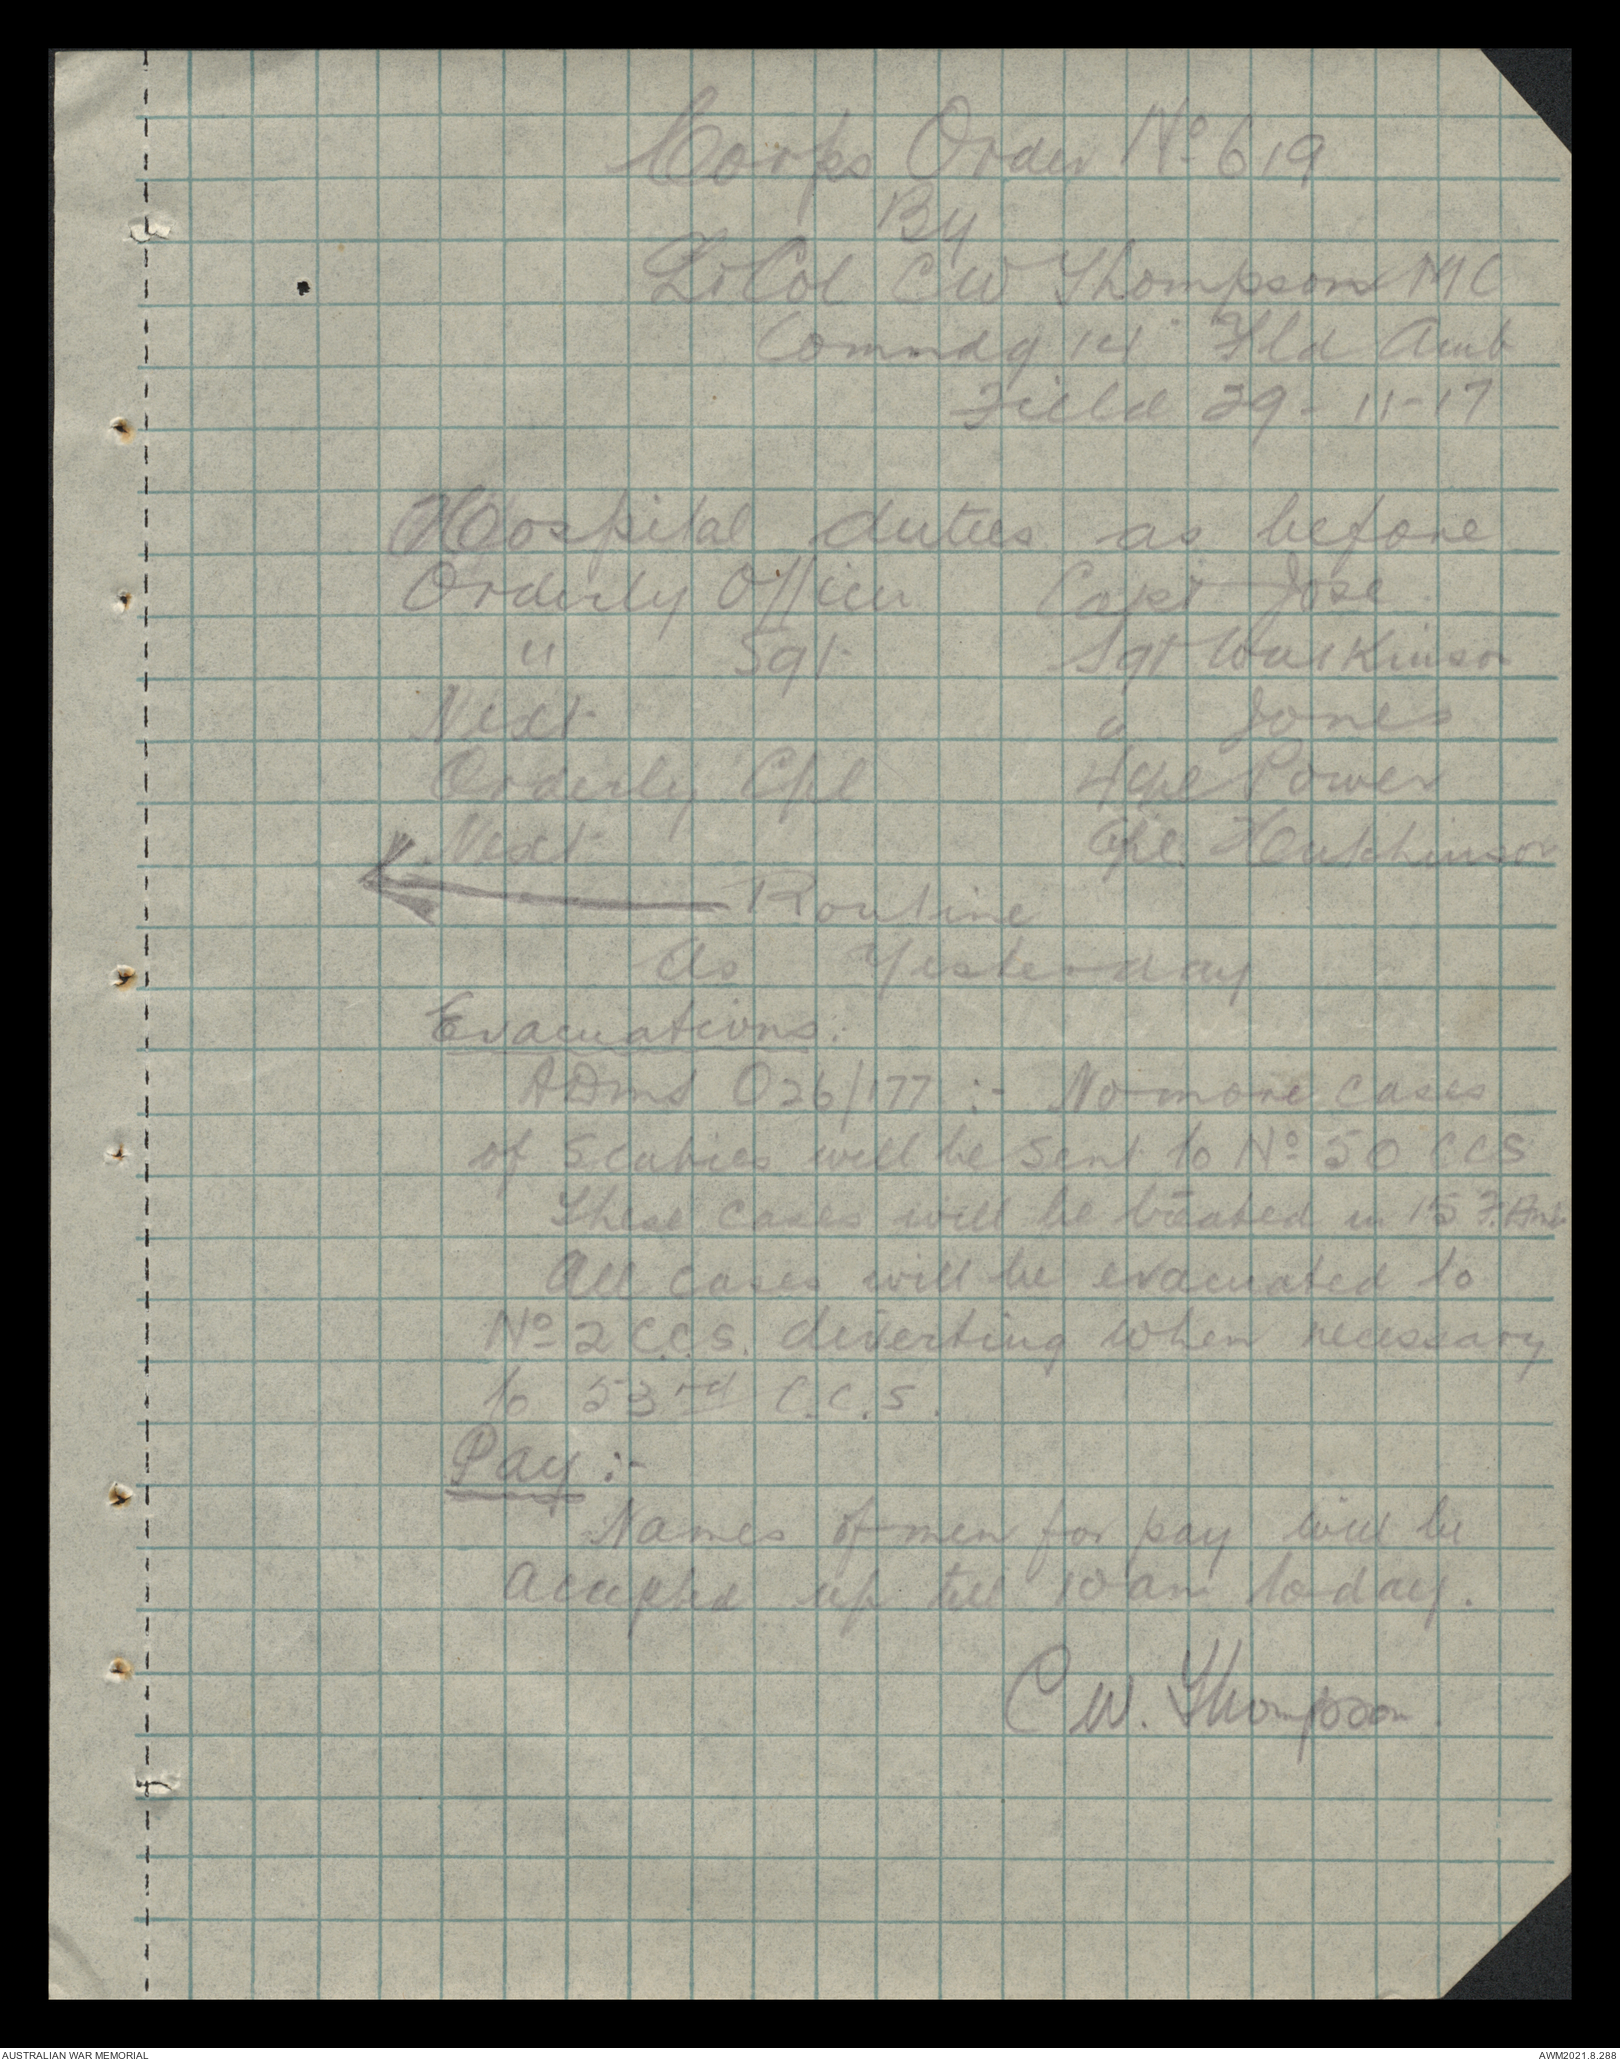 Corps Order No 619
By
Lt Col C W Thompson MC
Commdg 14 Fld Amb
Field 29-11-17
Hospital duties as before
Orderly Officer Capt Jose.
" Sgt Sgt Watkinson
Next " Jones
Orderly Cpl Power
Next Cpl. Hutchinson
Routine
As Yesterday
Evacuations:
ADMS O26/177 :- No more cases
of scabies will be sent to No 50 CCS
These cases will be treated in 15 F. Amb.
All cases will be evacuated to
No 2 C.C.S. diverting when necessary
to 53rd C.C.S.
Pay :-
Names of men for pay will be
accepted up till 10 am today.
C W. Thompson.
AUSTRALIAN WAR MEMORIAL AWM2021.8.288